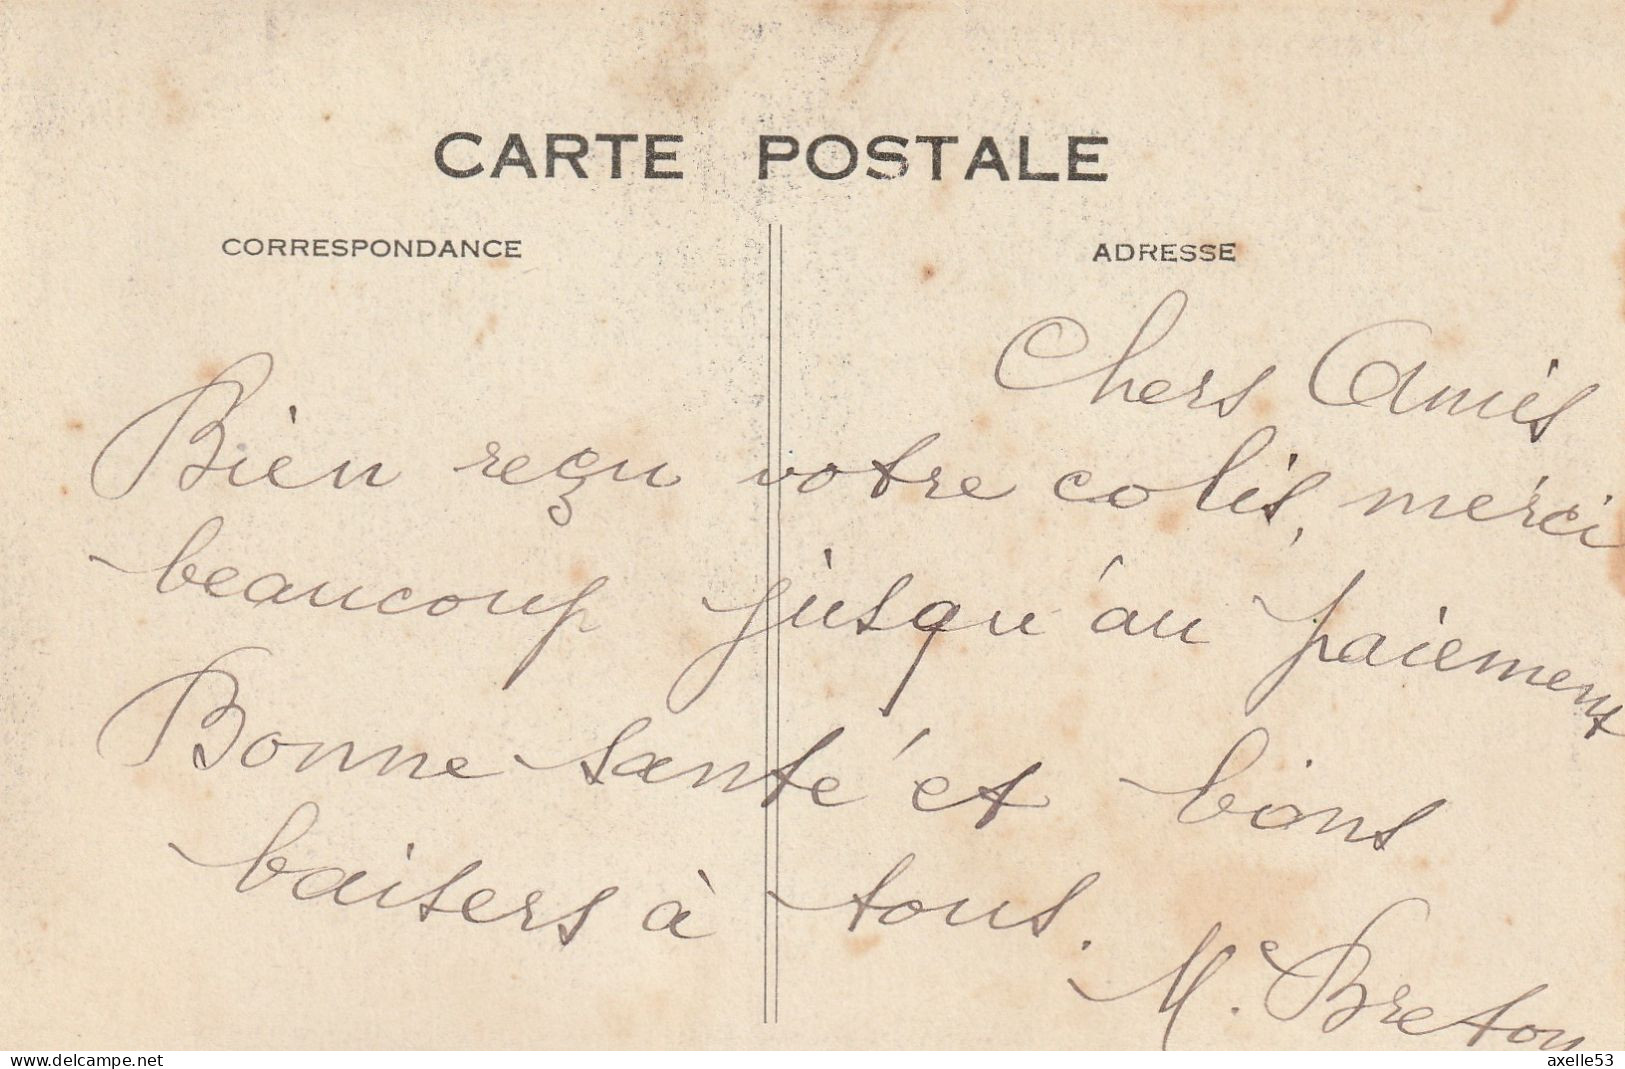 CARTE POSTALE
CORRESPONDANCE
ADRESSE
Chers Amis
Bien reçu votre colis, merci
beaucoup jusqu'au paiement
Bonne santé et bons
baisers à tous.
Me. Breton
www.delcampe.net
axelle53